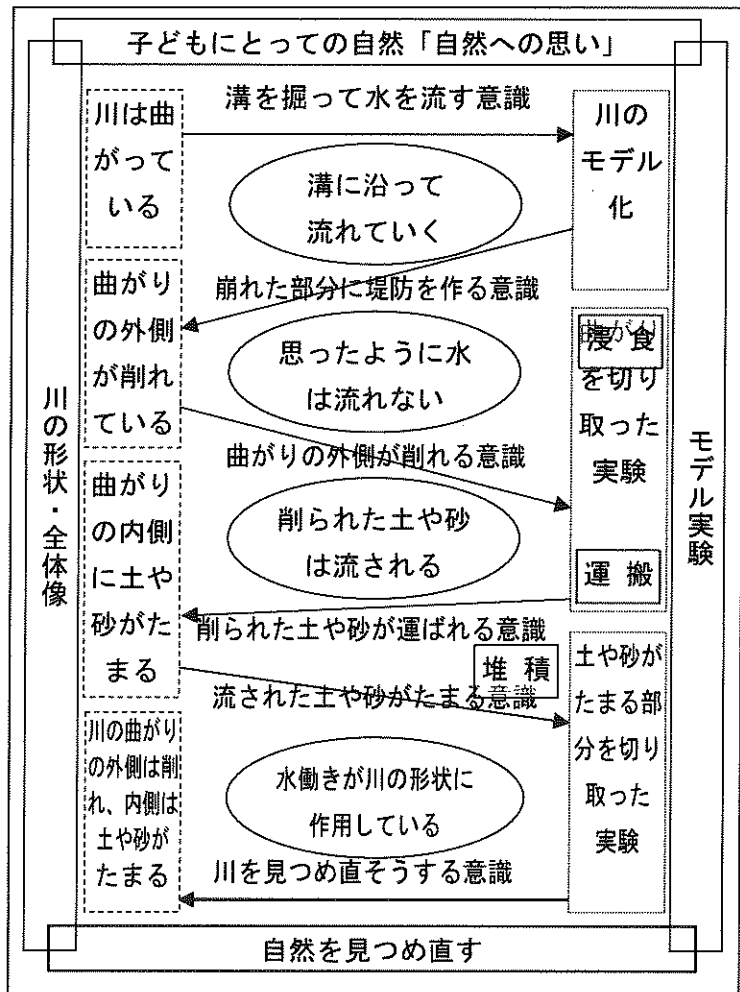 子どもにとっての自然「自然への思い」
川の形状・全体像
川は曲
がって
いる
溝を掘って水を流す意識
川の
モデル
化
溝に沿って
流れていく
崩れた部分に堤防を作る意識
曲がり
の外側
が削れ
ている
思ったように水
は流れない
浸食
曲がり
を切り
取った
実験
運搬
曲がりの外側が削れる意識
削られた土や砂
は流される
曲がり
の内側
に土や
砂がた
まる
削られた土や砂が運ばれる意識
堆積
流された土や砂がたまる意識
土や砂が
たまる部
分を切り
取った
実験
川の曲がり
の外側は削
れ、内側は
土や砂が
たまる
水働きが川の形状に
作用している
川を見つめ直そうする意識
モデル実験
自然を見つめ直す